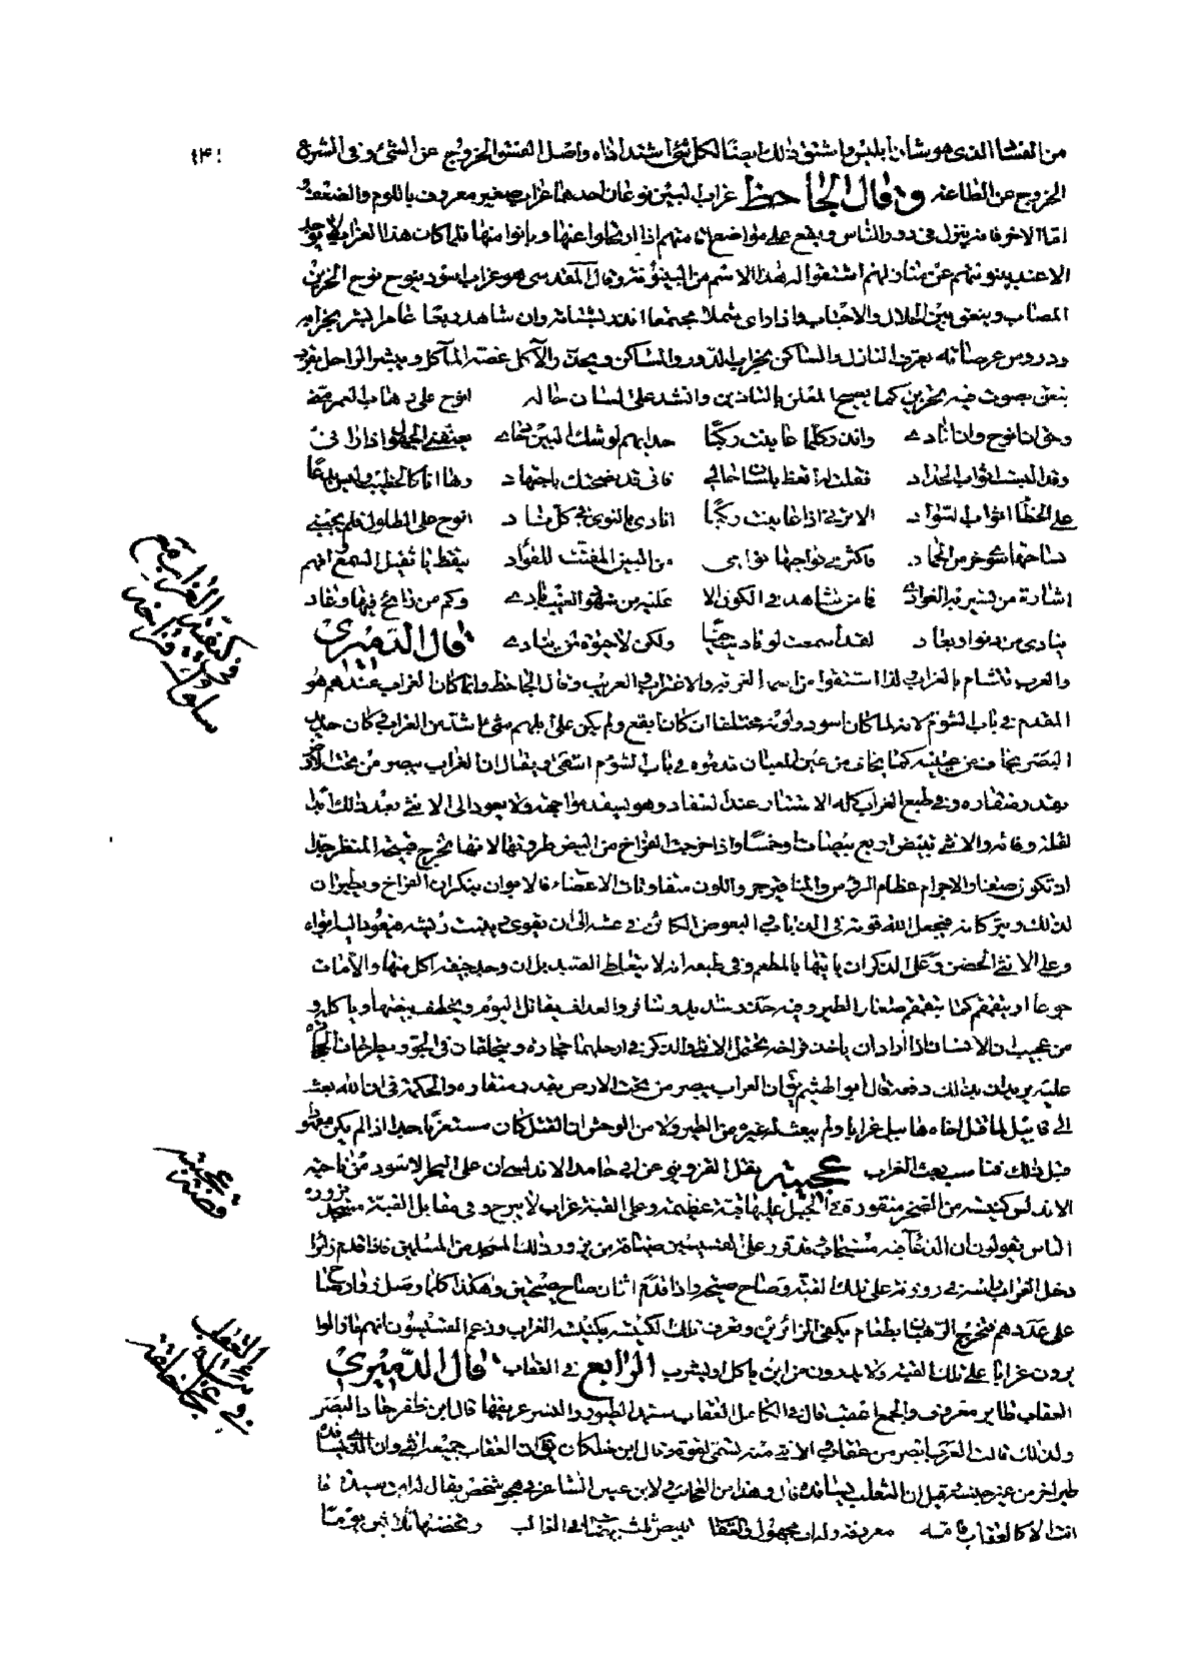 ١٤١
من الفسا الذي هو شأن ابليس واشتق ذلك ايضا لكل شئ اشتد اذاه واصل الفسق الخروج عن الشئ وفي الشرع
الخروج عن الطاعة وقال الجاحظ غراب البين نوعان احدهما غراب صغير معروف باللوم والضعف
اما الاخر فانه ينزل في دور الناس ويقع على مواضع اقامتهم اذا ارتحلوا عنها وبانوا منها فلما كان هذا الغراب لا يوجد
الا عند بينونتهم عن منازلهم اشتقوا له هذا الاسم من البينونة وقال المقدسي هو غراب اسود ينوح نوح الحزين
المصاب وينعق بين الخلال والاحباب واذا راى شملا مجتمعا انذر بشتاته وان شاهد ربعا عامرا بشر بخرابه
ودروس عرصاته يعرف النازل والساكن بخراب الدور والمساكن ويحذر الآكل غصة المآكل ويبشر الراحل بقرب
ينعق بصوت فيه تحزين كما يصيح المعلن بالتاذين وانشد على لسان حاله انوح على ذهاب العمر مني
وحق ان انوح وان انادي واندب كلما عاينت ركبا حدا بهم لوشك البين حادي يعنفني الجهول اذا راني
وقد البست اثواب الحداد فقلت له اتعظ بلسان حالي فاني قد نصحتك باجتهاد وها انا كالخطيب وليس بدعا
على الخطباء اثواب السواد الا ترني اذا عاينت ركبا انادي بالنوى في كل ناد انوح على الطلول فلم يجبني
بساحتها سوى خرس الجماد فاكثر في نواحيها نواحي من البين المفتت للفؤاد تيقظ يا ثقيل السمع وافهم
اشارة من تسير به الغوادي فما من شاهد في الكون الا عليه من شهود الغيب بادي وكم من رائح فيها وغاد
ينادي من دنو او بعاد لقد اسمعت لو ناديت حيا ولكن لا حيوة لمن ينادي قال الدميري
والعرب تتشاءم بالغراب ولذا اشتقوا من اسمه الغربة والاغتراب والغريب وقال الجاحظ وانما كان الغراب عندهم هو
المقدم في باب الشوم لانه لما كان اسود ولونه مختلفا ان كان ابقع ولم يكن على ابلهم شئ اشد من الغراب وكان حديد
البصر يخاف من عينيه كما يخاف من عين المعيان قدموه في باب الشوم انتهى ويقال ان الغراب يبصر من تحت الارض
بقدر منقاره وفي طبع الغراب كله الاستتار عند السفاد وهو يسفد مواجهة ولا يعود الى الانثى بعد ذلك ابدا
لقلة وفائه والانثى تبيض اربع بيضات وخمسا واذا خرجت الفراخ من البيض طردتها لانها تخرج قبيحة المنظر جدا
اذ تكون صغار الاجرام عظام الرؤس والمناقير جرد اللون متفاوتات الاعضاء فالابوان ينكران الفراخ ويطيران
لذلك ويتركانه فيجعل الله قوته في الذباب والبعوض الكائن في عشه الى ان يقوى وينبت ريشه فيعود اليه ابواه
وعلى الانثى الحضن وعلى الذكر ان ياتيها بالمطعم وفي طبعه انه لا يتعاطى الصيد بل ان وجد جيفة اكل منها والا مات
جوعا او يتقمم كما يتقمم صغار الطير وفيه حذر شديد وتنافر والغداف يقاتل البوم ويخطف بيضها وياكله و
من عجيب ان الانسان اذا اراد ان ياخذ فراخه يحتمل الانثى والذكر في ارجلهما حجارة ويتحلقان في الجو ويطرحان الحجارة
عليه يريدان بذلك دفعه قال ابو الهيثم يق ان الغراب يبصر من تحت الارض بقدر منقاره والحكمة في ان الله بعث
الى قابيل لما قتل اخاه هابيل غرابا ولم يبعث له غيره من الطير ولا من الوحش ان القتل كان مستغربا جدا اذ لم يكن معهودا
قبل ذلك فناسب بعث الغراب عجيبة نقل القزويني عن ابي حامد الاندلسي ان على البحر الاسود من ناحية
الاندلس كنيسة من الصخر منقورة في الجبل عليها قبة عظيمة وعلى القبة غراب لا يبرح وفي مقابل القبة مسجد يزوره
الناس يقولون ان الدعاء فيه مستجاب قد قرر على القسيسين ضيافة من يزور ذلك المسجد من المسلمين فاذا قدم زائر
دخل الغراب راسه في روزنة على تلك القبة وصاح صيحة واذا قدم اثنان صاح صيحتين وهكذا كلما وصل زوار صاح
على عددهم فتخرج الرهبان بطعام يكفي الزائرين وتعرف تلك الكنيسة بكنيسة الغراب وزعم القسيسون انهم ما زالوا
يرون غرابا على تلك القبة ولا يدرون من اين ياكل او يشرب الرابع في العقاب قال الدميري
العقاب طاير معروف والجمع اعقب قال في الكامل العقاب سيد الطيور والنسر عريفها قال ابن ظفر حاد البصر
ولذلك قالت العرب ابصر من عقاب والانثى منه تسمى لقوة قال ابن خلكان يق ان العقاب جميعه انثى وان الذي يسافده
طير اخر من غير جنسه وقيل ان الثعلب يسافده قال وهذا من العجائب ولابن عنين الشاعر في هجو شخص يقال له ابن سيدة
ما انت الا كالعقاب فامه معروفة وله اب مجهول
في كيفية الغراب مع
سلوك فراخه
عجيبة
قصة
العقاب
في غرابة
خلقته